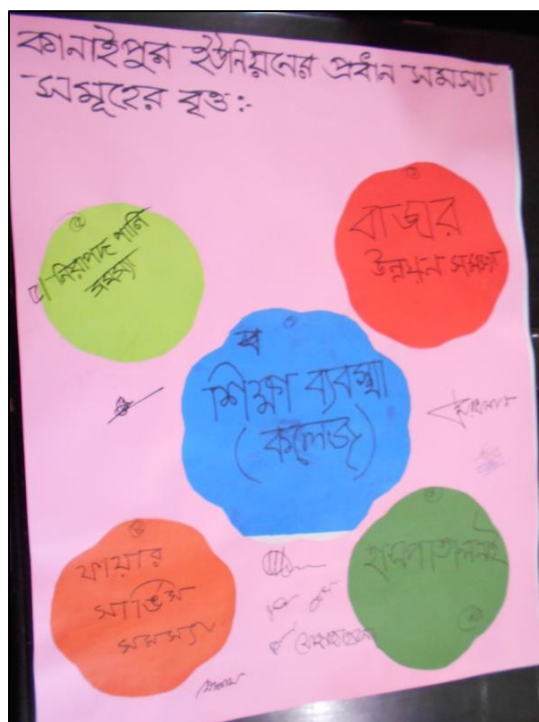 কানাইপুর ইউনিয়নের প্রধান সমস্যা
সমূহের বৃত্ত:-
নিরাপদ পানি
সমস্যা
বাজার
উন্নয়ন সমস্যা
শিক্ষা ব্যবস্থা
(কলেজ)
ফায়ার
সার্ভিস
সমস্যা
হাসপাতাল নাই